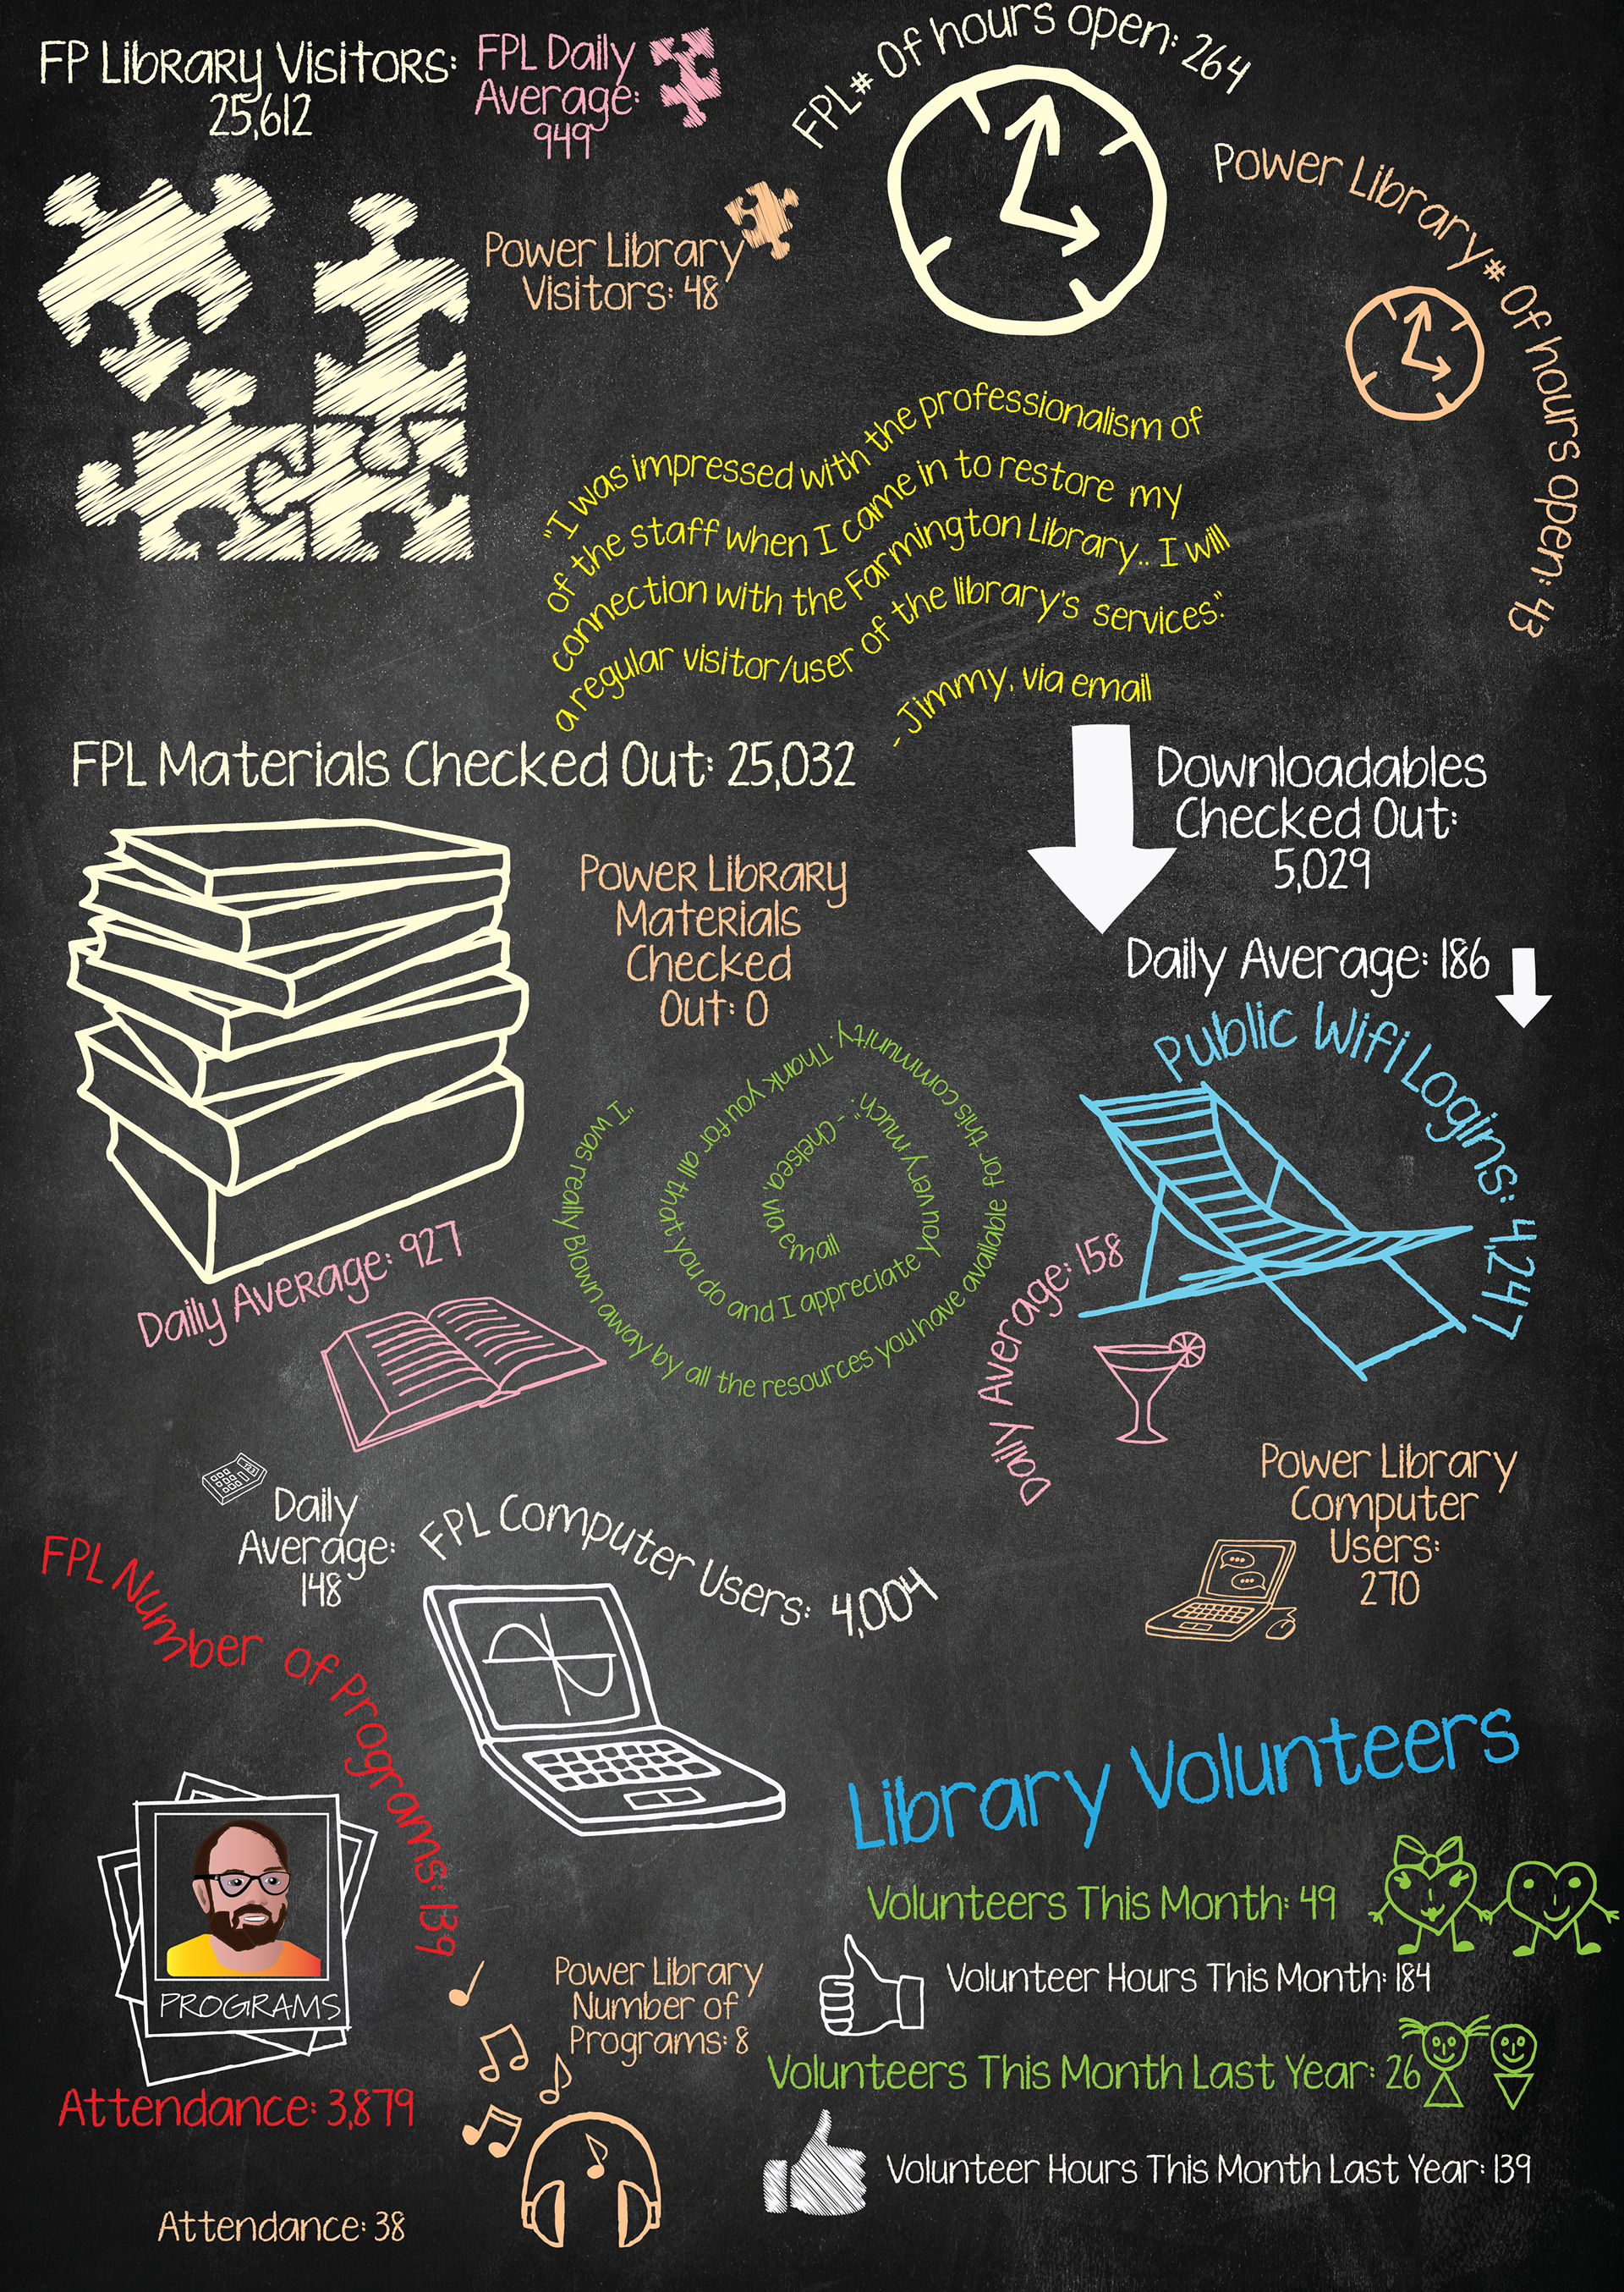 FP Library Visitors:
25,612
FPL Daily
Average:
949
Power Library
Visitors: 48
FPL# Of hours open: 264
Power Library # Of hours open: 43
"I was impressed with the professionalism of
of the staff when I came in to restore my
connection with the Farmington Library.. I will
a regular visitor/user of the library's services."
- Jimmy, via email
FPL Materials Checked Out: 25,032
Downloadables
Checked Out:
5,029
Daily Average: 186
Power Library
Materials
Checked
Out: 0
Daily Average: 927
"I was really Blown away by all the resources you have available for this community. Thank you for all that you do and I appreciate you very much". - Chelsea, via email
Public Wifi Logins: 4,247
Daily Average: 158
123
Daily
Average:
148
FPL Computer Users: 4,004
Power Library
Computer
Users:
270
FPL Number of Programs: 139
PROGRAMS
Attendance: 3,879
Power Library
Number of
Programs: 8
Attendance: 38
Library Volunteers
Volunteers This Month: 49
Volunteer Hours This Month: 184
Volunteers This Month Last Year: 26
Volunteer Hours This Month Last Year: 139